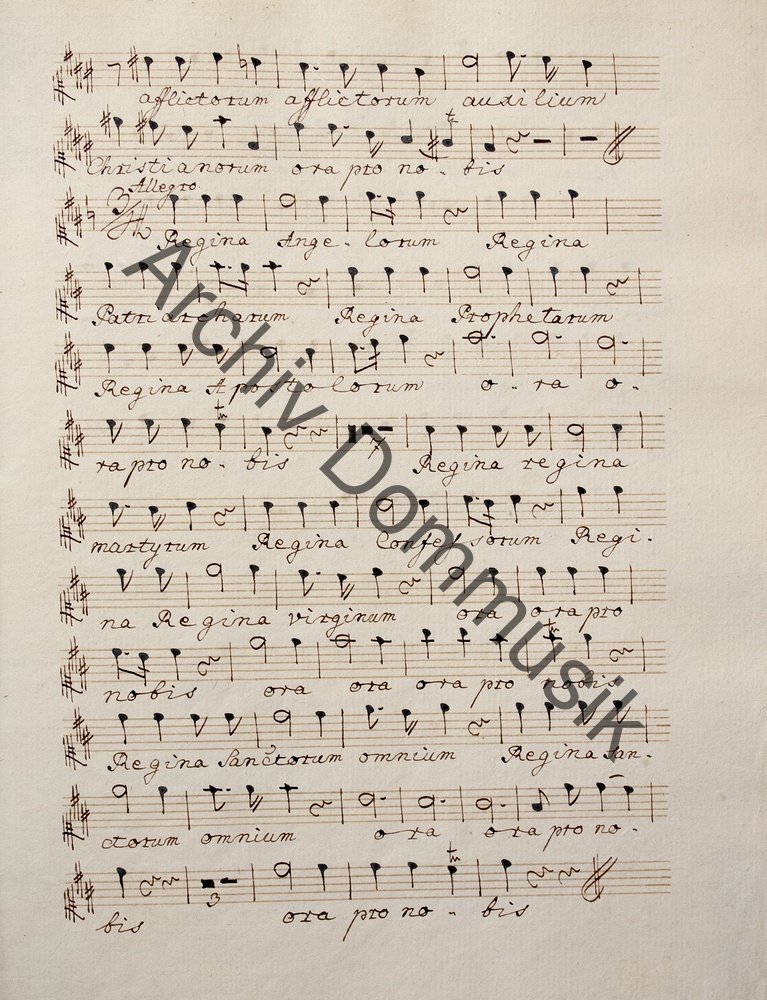 afflictorum afflictorum auxilium
Christianorum ora pro no - bis
Allegro.
Regina Ange - lorum Regina
Patriarcharum Regina Prophetarum
Regina Apostolorum o - ra o -
ra pro no - bis Regina regina
martyrum Regina Confessorum Regi -
na Regina virginum ora ora pro
nobis ora ora ora pro nobis
Regina Sanctorum omnium Regina San -
ctorum omnium o ra ora pro no -
3
bis ora pro no - bis
Archiv Dommusik